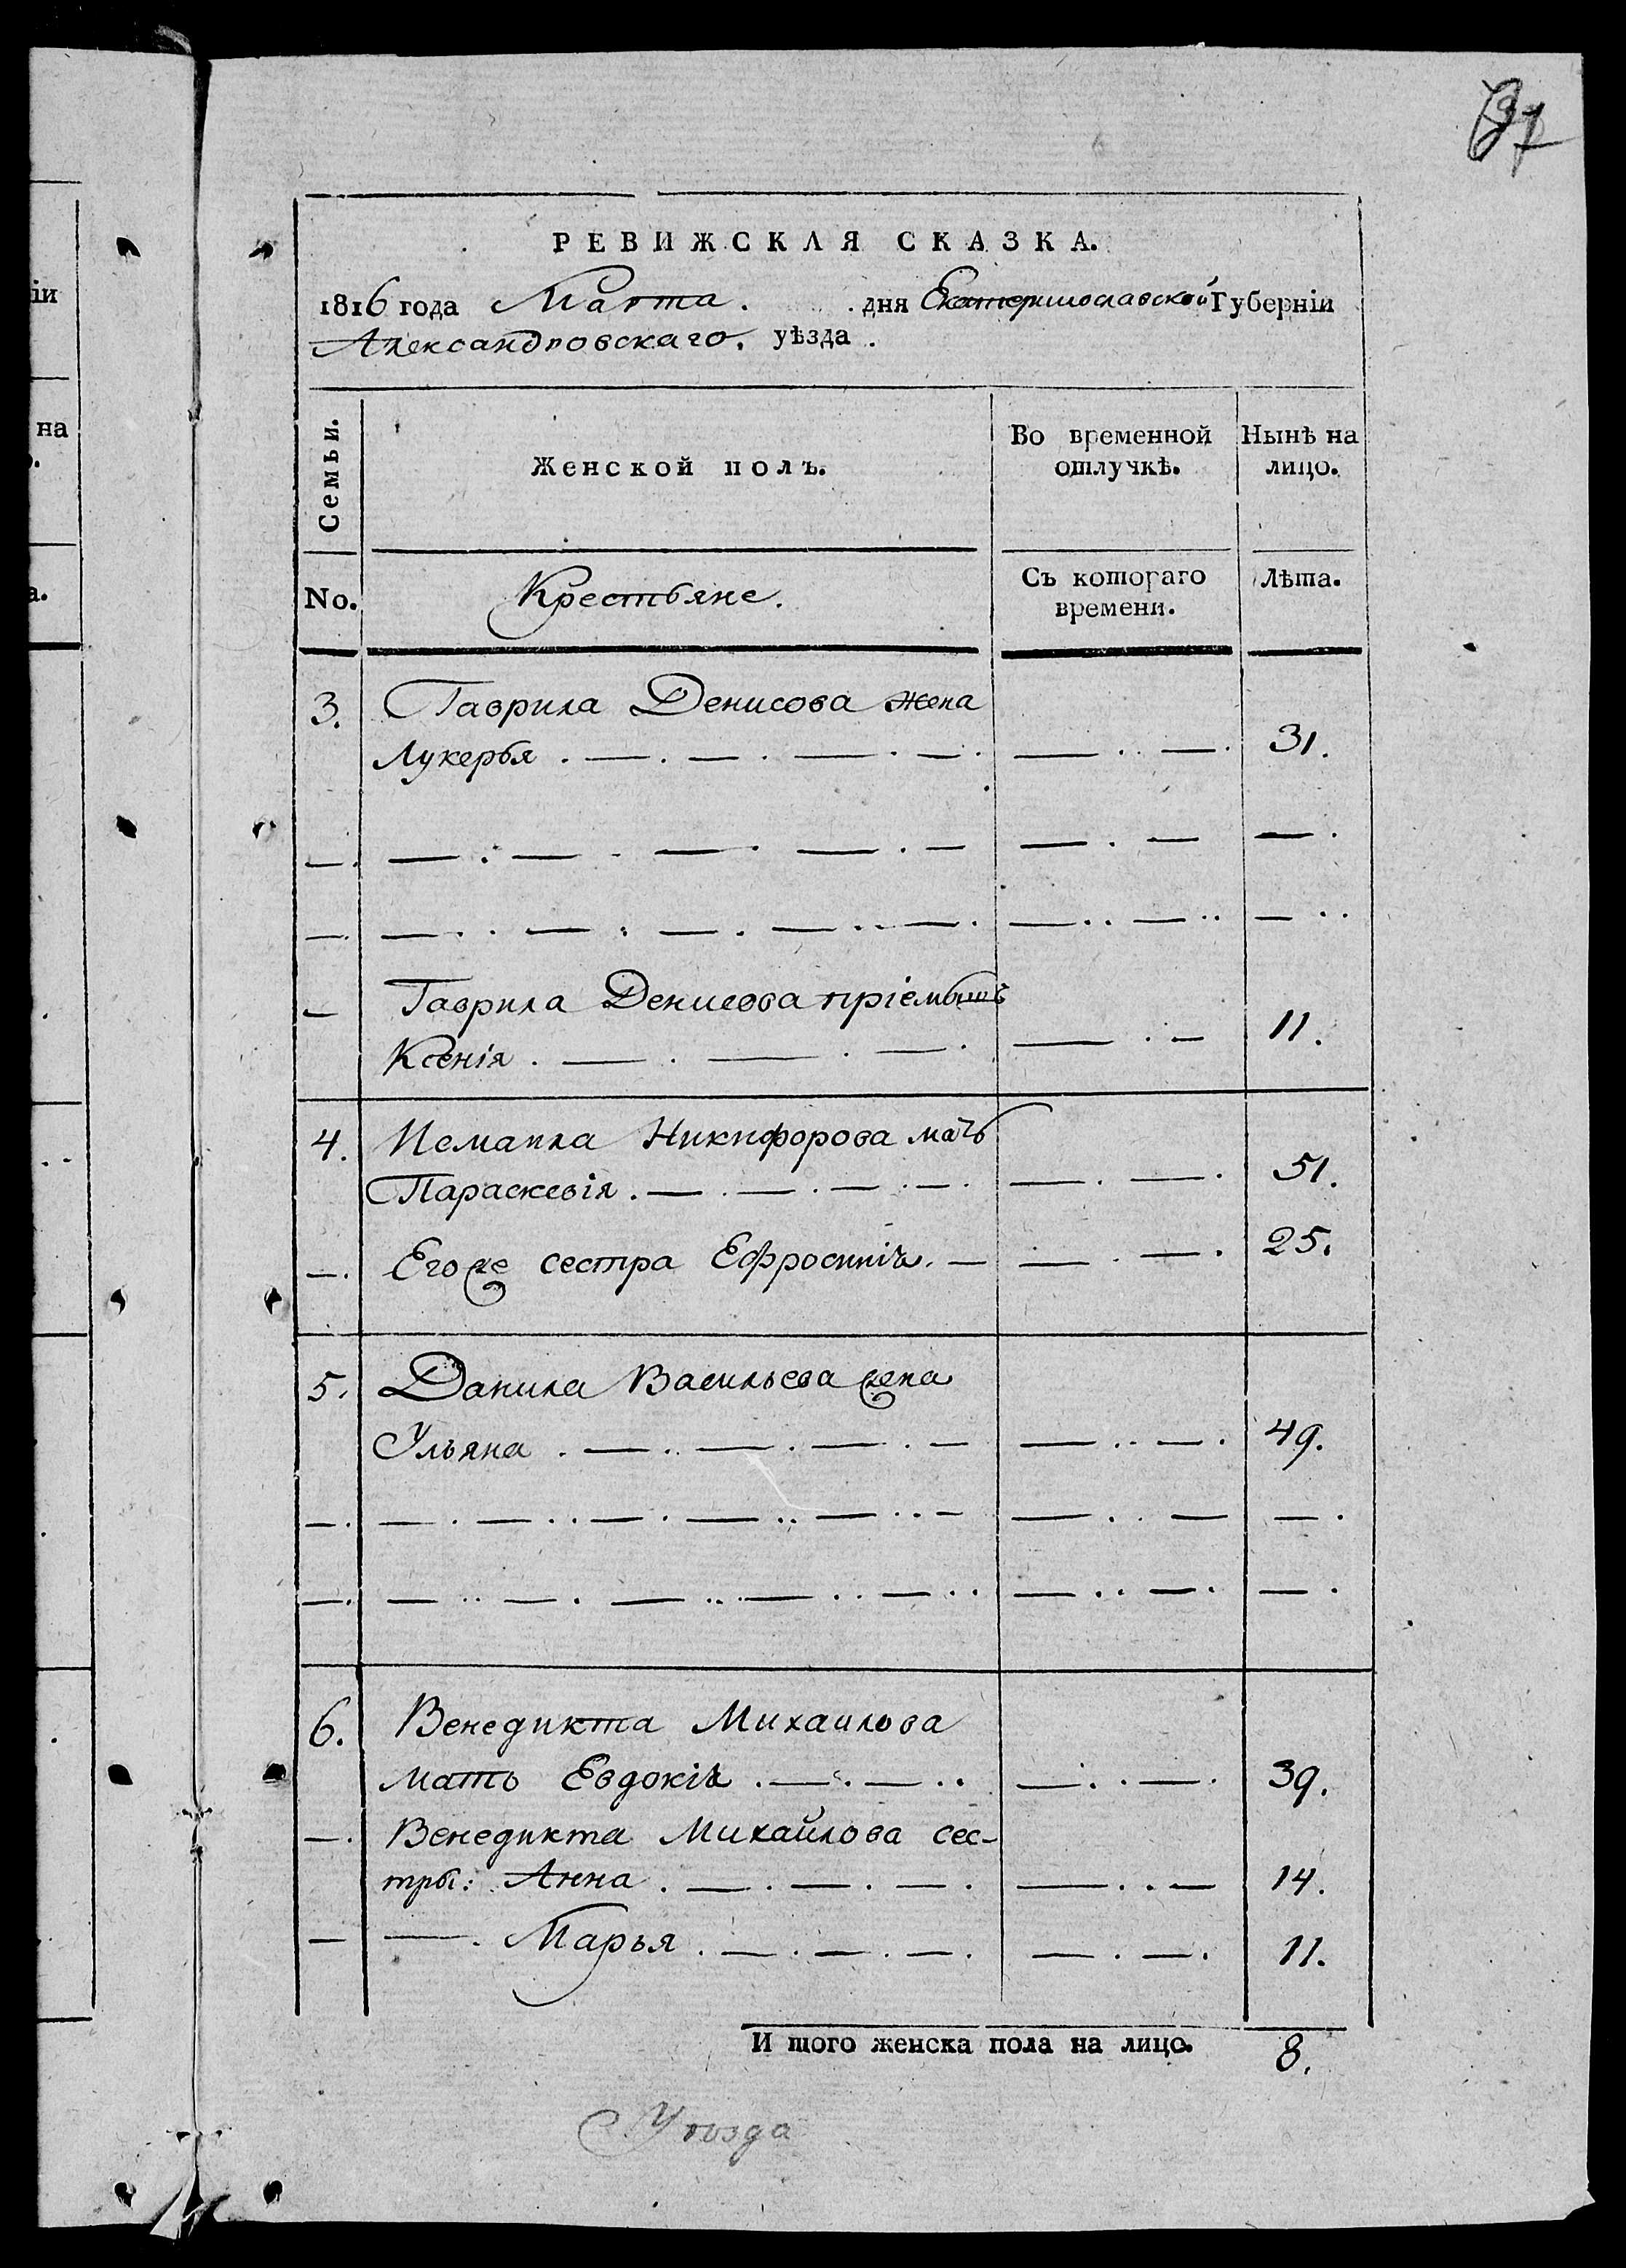 іи
на
37
РЕВИЖСКАЯ СКАЗКА.
1816 года Марта. дня Екатеринославской Губерніи
Александровскаго. уѣзда.
Семьи.
Женской полъ.
Во временной
отлучкѣ.
Нынѣ на
лицо.
No.
Крестьяне.
Съ котораго
времени.
Лѣта.
3. Гаврила Денисова жена
Лукерья . — . — . — . — . — .. — . 31.
— . — . — . — . — . — — . — — .
— . — .. — . — . — .. — . — .. — .. — ..
— Гаврила Денисова пріемышъ
Ксенія . — . — . — . — . — 11.
4. Немапла Никифорова мать
Параскевія . — . — . — . — . — . — . 51.
— . Его же сестра Ефросинія. — — . — . 25.
5. Данила Васильева жена
Ульяна . — .. — . — . — — .. — . 49.
— . — . — .. — . — .. — .. — — .. — — .
— . — .. — . — .. — .. — .. — .. — . — .
6. Венедикта Михаилова
мать Евдокія . — . — .. — .. — . 39.
— . Венедикта Михайлова сес-
тры: Анна . — . — . — . — .. — 14.
— — . Марья . — . — . — . — . — . 11.
И того женска пола на лицо. 8.
Уѣзда